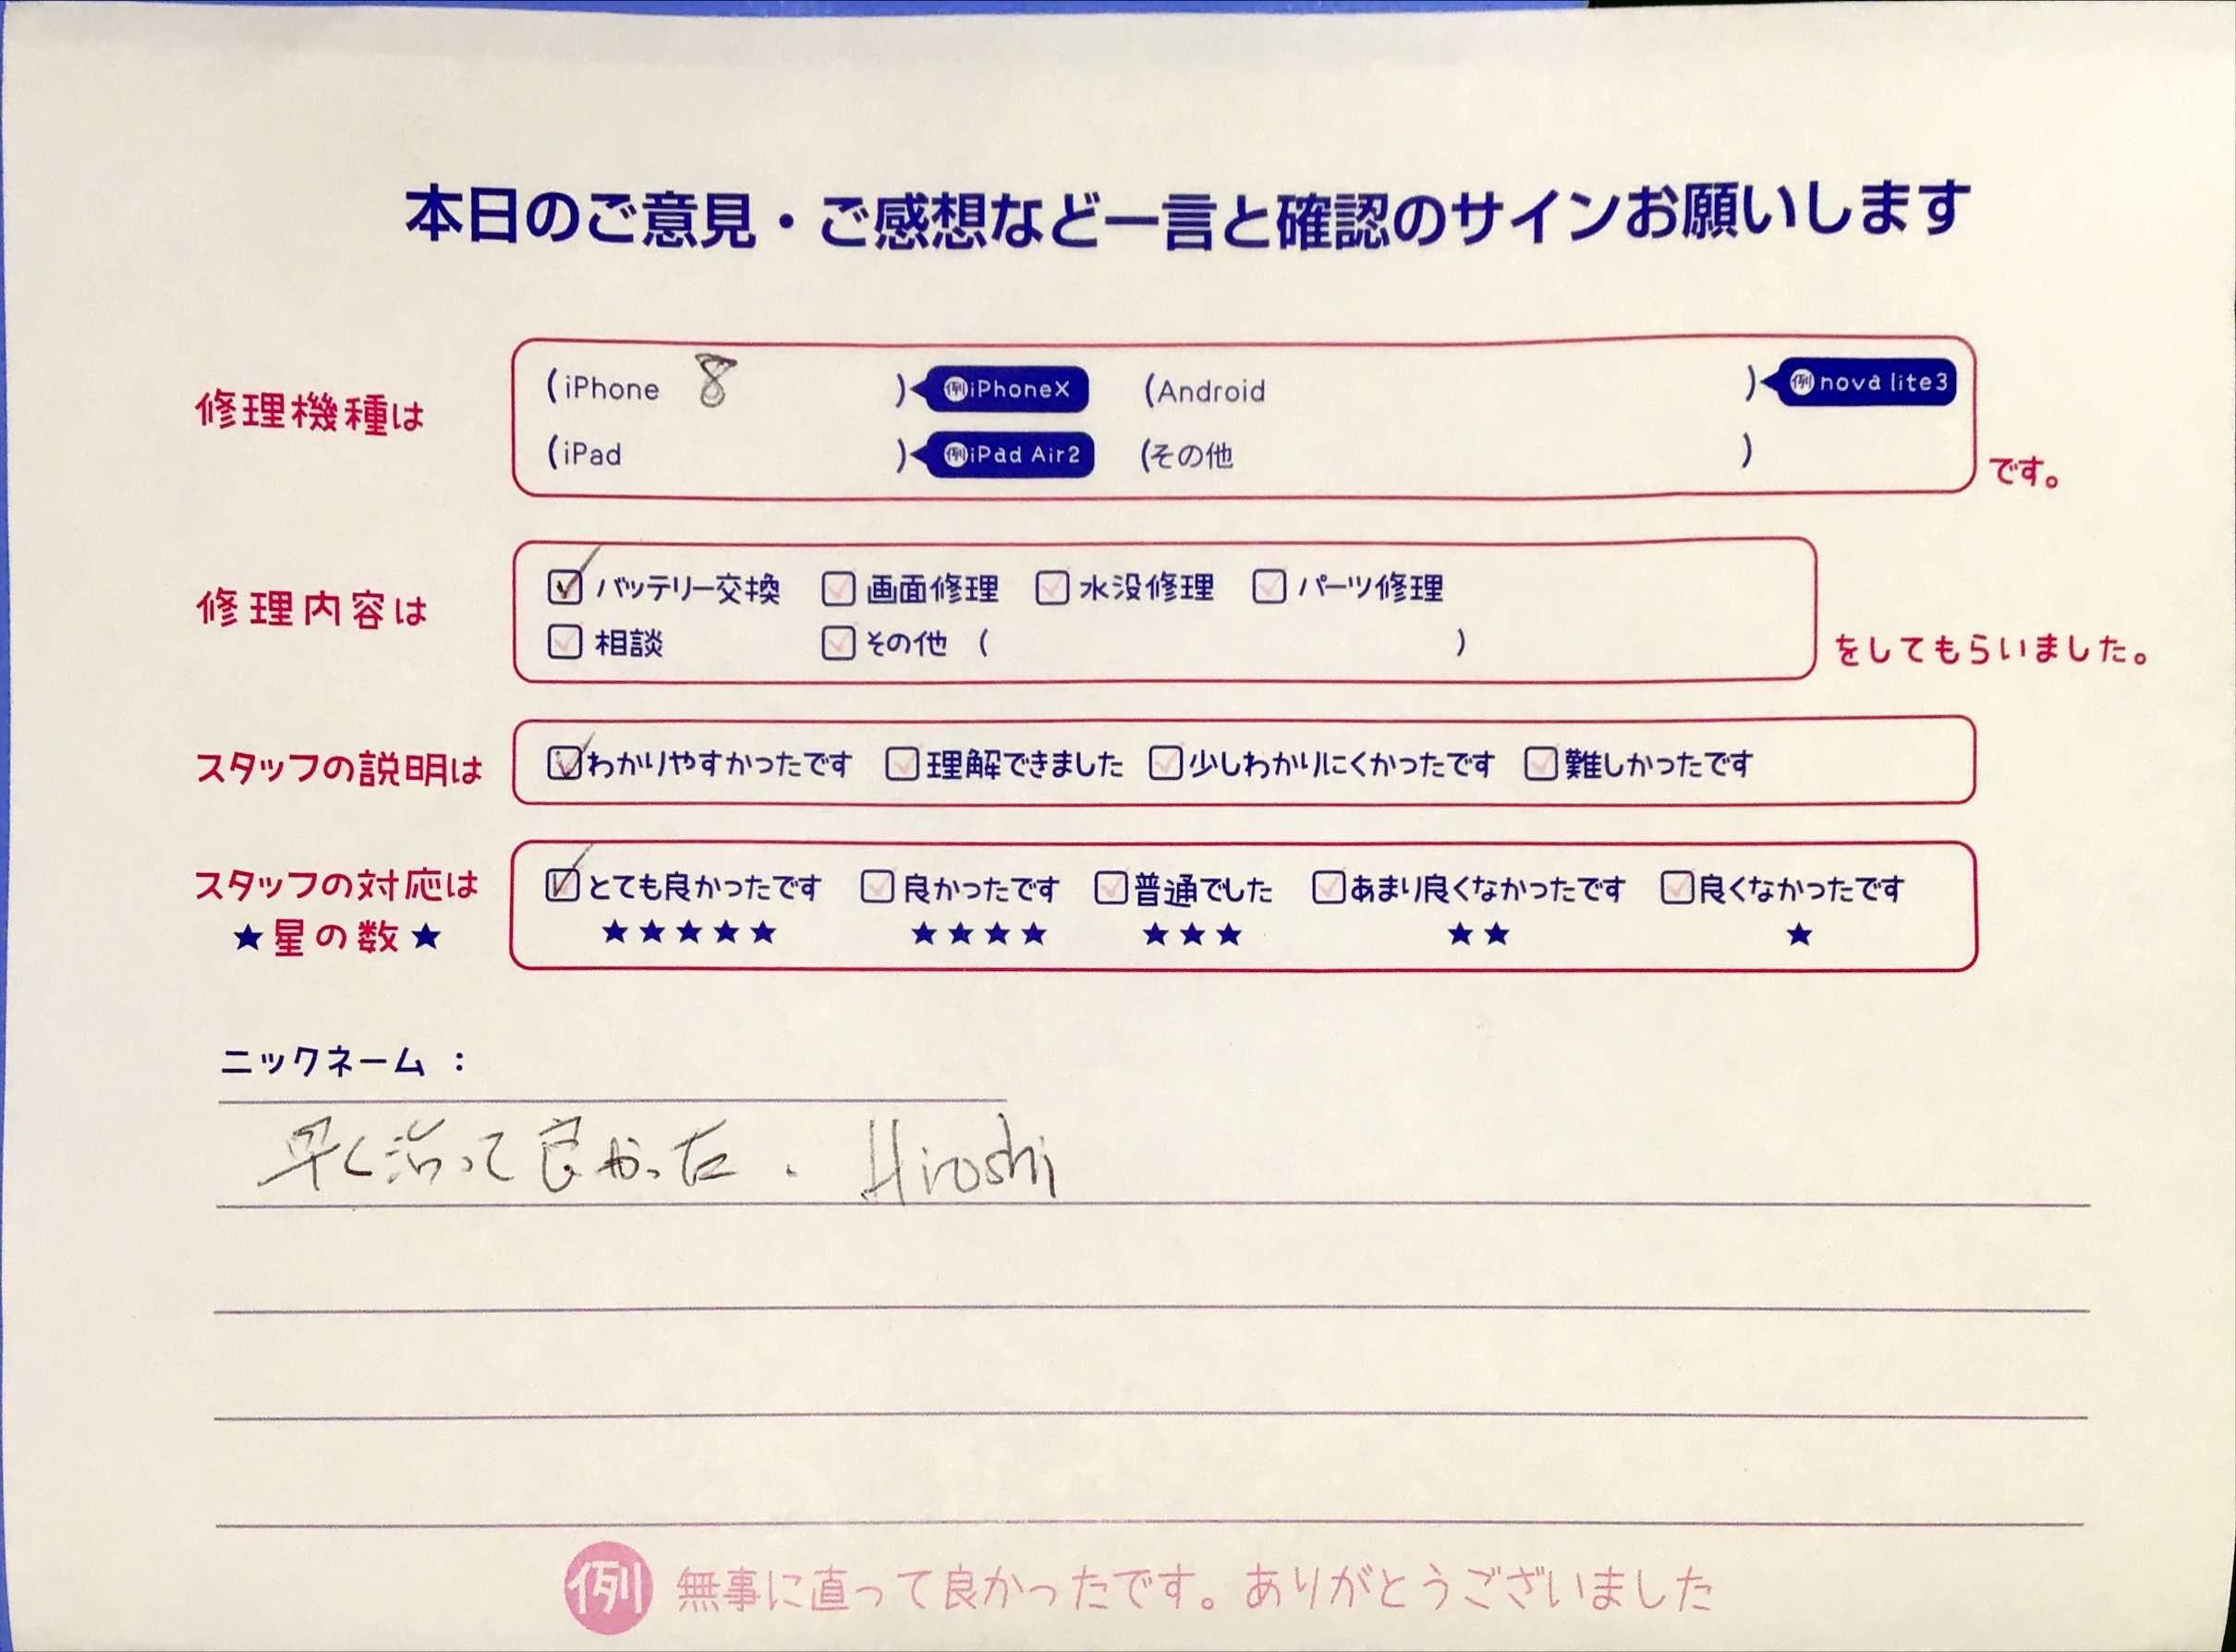 本日のご意見・ご感想など一言と確認のサインお願いします
修理機種は
(iPhone 8 ) 例iPhoneX (Android ) 例nova lite3
(iPad ) 例iPad Air2 (その他 )
です。
修理内容は
バッテリー交換 画面修理 水没修理 パーツ修理
相談 その他 ( )
をしてもらいました。
スタッフの説明は わかりやすかったです 理解できました 少しわかりにくかったです 難しかったです
スタッフの対応は とても良かったです 良かったです 普通でした あまり良くなかったです 良くなかったです
★星の数★ ★★★★★ ★★★★ ★★★ ★★ ★
ニックネーム :
早く治って良かった. Hiroshi
例 無事に直って良かったです。ありがとうございました